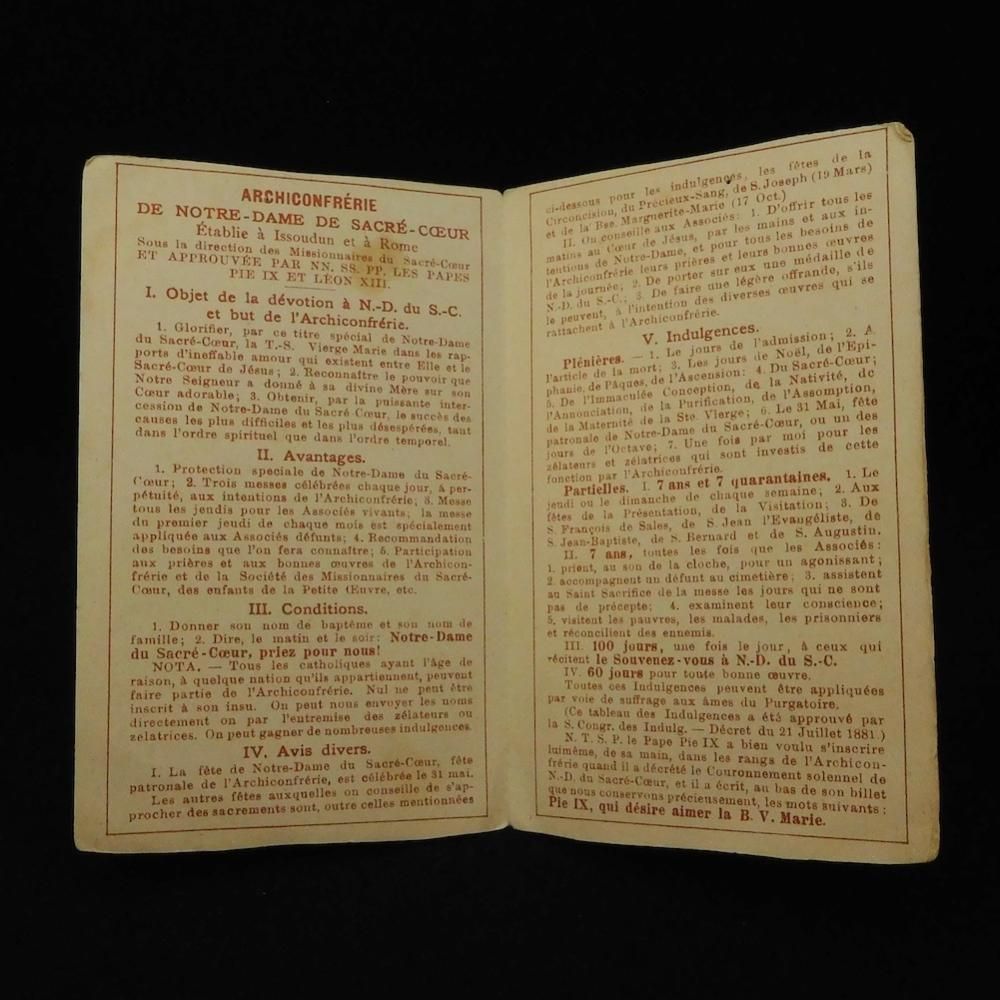 ARCHICONFRÉRIE
DE NOTRE-DAME DE SACRÉ-CŒUR
Établie à Issoudun et à Rome
Sous la direction des Missionnaires du Sacré-Cœur
ET APPROUVÉE PAR NN. SS. PP. LES PAPES
PIE IX ET LÉON XIII.
I. Objet de la dévotion à N.-D. du S.-C.
et but de l'Archiconfrérie.
1. Glorifier, par ce titre spécial de Notre-Dame
du Sacré-Cœur, la T.-S. Vierge Marie dans les rap-
ports d'ineffable amour qui existent entre Elle et le
Sacré-Cœur de Jésus; 2. Reconnaître le pouvoir que
Notre Seigneur a donné à sa divine Mère sur son
Cœur adorable; 3. Obtenir, par la puissante inter-
cession de Notre-Dame du Sacré Cœur, le succès des
causes les plus difficiles et les plus désespérées, tant
dans l'ordre spirituel que dans l'ordre temporel.
II. Avantages.
1. Protection speciale de Notre-Dame du Sacré-
Cœur; 2. Trois messes célébrées chaque jour, à per-
pétuité, aux intentions de l'Archiconfrérie; 3. Messe
tous les jeudis pour les Associés vivants; la messe
du premier jeudi de chaque mois est spécialement
appliquée aux Associés défunts; 4. Recommandation
des besoins que l'on fera connaître; 5. Participation
aux prières et aux bonnes œuvres de l'Archicon-
frérie et de la Société des Missionnaires du Sacré-
Cœur, des enfants de la Petite Œuvre, etc.
III. Conditions.
1. Donner son nom de baptême et son nom de
famille; 2. Dire, le matin et le soir: Notre-Dame
du Sacré-Cœur, priez pour nous!
NOTA. — Tous les catholiques ayant l'âge de
raison, à quelque nation qu'ils appartiennent, peuvent
faire partie de l'Archiconfrérie. Nul ne peut être
inscrit à son insu. On peut nous envoyer les noms
directement on par l'entremise des zélateurs ou
zelatrices. On peut gagner de nombreuses indulgences.
IV. Avis divers.
I. La fête de Notre-Dame du Sacré-Cœur, fête
patronale de l'Archiconfrérie, est célébrée le 31 mai.
Les autres fêtes auxquelles on conseille de s'ap-
procher des sacrements sont, outre celles mentionnées
ci-dessous pour les indulgences, les fêtes de la
Circoncision, du Précieux-Sang, de S. Joseph (19 Mars)
et de la Bse. Marguerite-Marie (17 Oct.)
II. On conseille aux Associés: 1. D'offrir tous les
matins au Cœur de Jésus, par les mains et aux in-
tentions de Notre-Dame, et pour tous les besoins de
l'Archiconfrérie leurs prières et leurs bonnes œuvres
de la journée; 2. De porter sur eux une médaille de
N.-D. du S.-C.; 3. De faire une légère offrande, s'ils
le peuvent, à l'intention des diverses œuvres qui se
rattachent à l'Archiconfrérie.
V. Indulgences.
Plénières. — 1. Le jours de l'admission; 2. A
l'article de la mort; 3. Les jours de Noël, de l'Epi-
phanie, de Pâques, de l'Ascension: 4. Du Sacré-Cœur;
5. De l'Immaculée Conception, de la Nativité, de
l'Annonciation, de la Purification, de l'Assomption,
de la Maternité de la Ste. Vierge; 6. Le 31 Mai, fête
patronale de Notre-Dame du Sacré-Cœur, ou un des
jours de l'Octave; 7. Une fois par moi pour les
zélateurs et zélatrices qui sont investis de cette
fonction par l'Archiconfrérie.
Partielles. I. 7 ans et 7 quarantaines. 1. Le
jeudi ou le dimanche de chaque semaine; 2. Aux
fêtes de la Présentation, de la Visitation; 3. De
S. François de Sales, de S. Jean l'Evangéliste, de
S. Jean-Baptiste, de S. Bernard et de S. Augustin.
II. 7 ans, toutes les fois que les Associés:
1. prient, au son de la cloche, pour un agonissant;
2. accompagnent un défunt au cimetière; 3. assistent
au Saint Sacrifice de la messe les jours qui ne sont
pas de précepte; 4. examinent leur conscience;
5. visitent les pauvres, les malades, les prisonniers
et réconcilient des ennemis.
III. 100 jours, une fois le jour, à ceux qui
récitent le Souvenez-vous à N.-D. du S.-C.
IV. 60 jours pour toute bonne œuvre.
Toutes ces Indulgences peuvent être appliquées
par voie de suffrage aux âmes du Purgatoire.
(Ce tableau des Indulgences a été approuvé par
la S. Congr. des Indulg. — Décret du 21 Juillet 1881.)
N. T. S. P. le Pape Pie IX a bien voulu s'inscrire
luimême, de sa main, dans les rangs de l'Archicon-
frérie quand il a décrété le Couronnement solennel de
N.-D. du Sacré-Cœur, et il a écrit, au bas de son billet
que nous conservons précieusement, les mots suivants:
Pie IX, qui désire aimer la B. V. Marie.